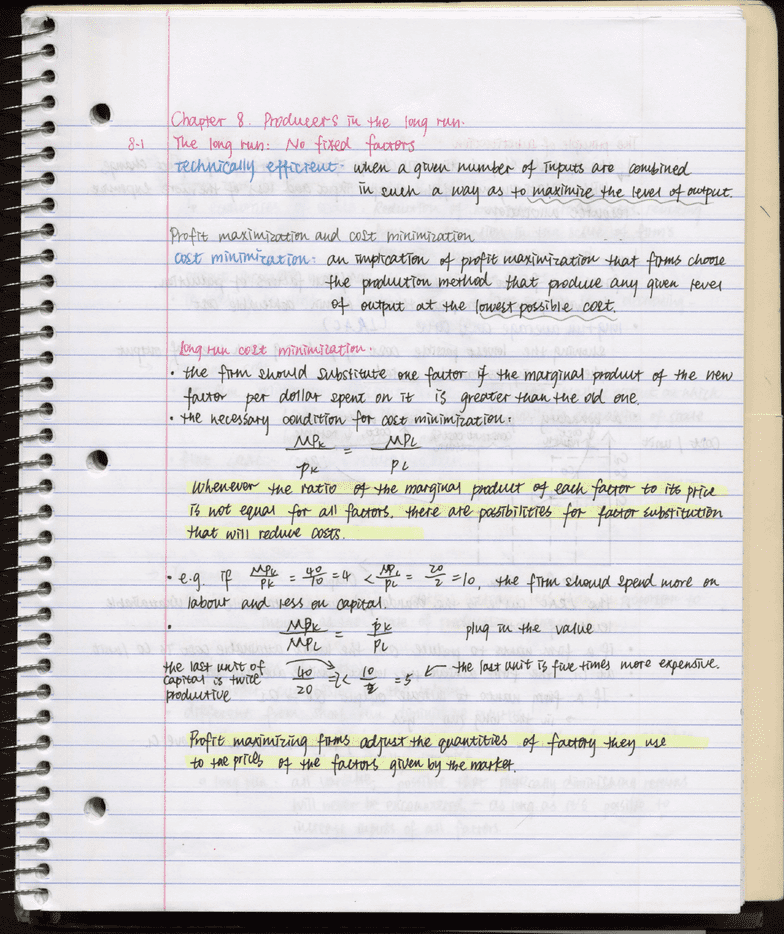 Chapter 8. Producers in the long run.
8-1 The long run: No fixed factors
technically efficient: when a given number of inputs are combined
in such a way as to maximize the level of output.
Profit maximization and cost minimization
cost minimization: an implication of profit maximization that firms choose
the production method that produce any given level
of output at the lowest possible cost.
Long run cost minimization.
• the firm should substitute one factor if the marginal product of the new
factor per dollar spent on it is greater than the old one.
• the necessary condition for cost minimization.
MPK/PK = MPL/PL
Whenever the ratio of the marginal product of each factor to its price
is not equal for all factors, there are possibilities for factor substitution
that will reduce costs.
• e.g. if MPK/PK = 40/10 = 4 < MPL/PL = 20/2 = 10, the firm should spend more on
labour and less on capital.
• MPK/MPL = PK/PL plug in the value
the last unit of capital is twice productive 40/20 = 2 < 10/2 = 5 ← the last unit is five times more expensive.
Profit maximizing firms adjust the quantities of factory they use
to the prices of the factors given by the market.